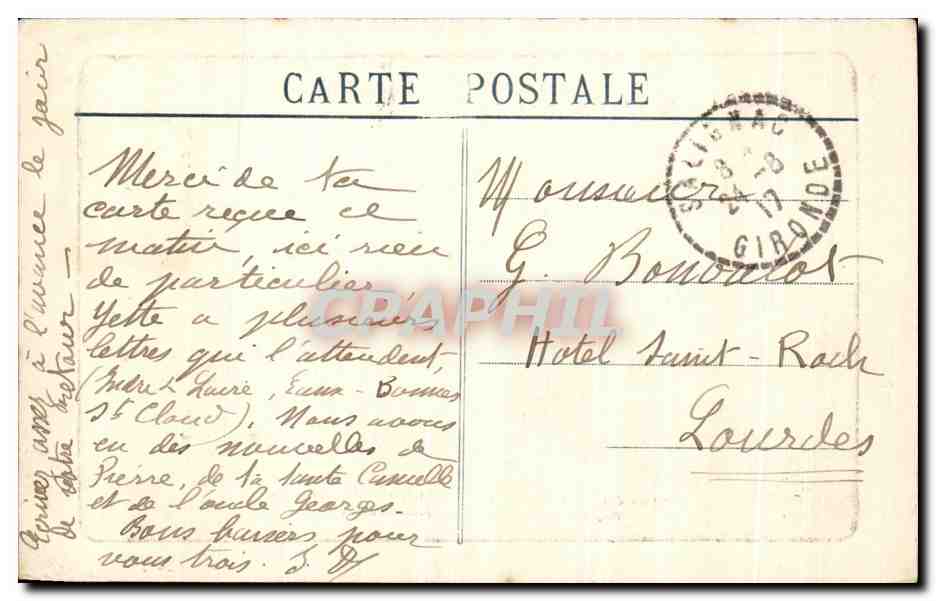 CARTE POSTALE
Merci de ta
carte reçue ce
matin, ici rien
de particulier,
Yette a plusieurs
lettres qui l'attendent,
(Indre & Loire, Eaux-Bonnes
St Cloud). Nous avons
eu des nouvelles de
Pierre, de ta tante Camille
et de l'oncle Georges.
Bons baisers pour
vous trois.
Ecrivez assez à l'avance le jour
de votre retour —
Monsieur
G. Bonvalot
Hotel Saint-Roch
Lourdes
SALIGNAC
8 -8
24 17
GIRONDE
CRAPHIL